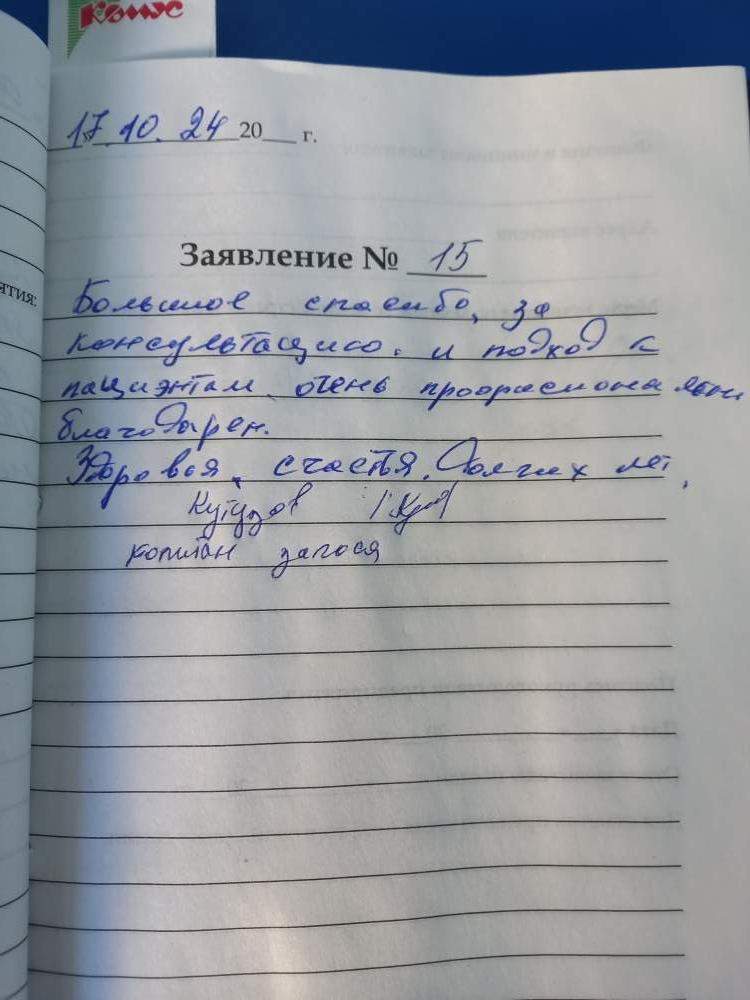 Комус
17.10.24 20___ г.
ятия:
Заявление № 15
Большое спасибо, за
консультацию. и подход к
пациэнтам, очень профрасиональни
благодарен.
Здоровья, счастья, Долгих лет,
Кутузов
капитан запаса